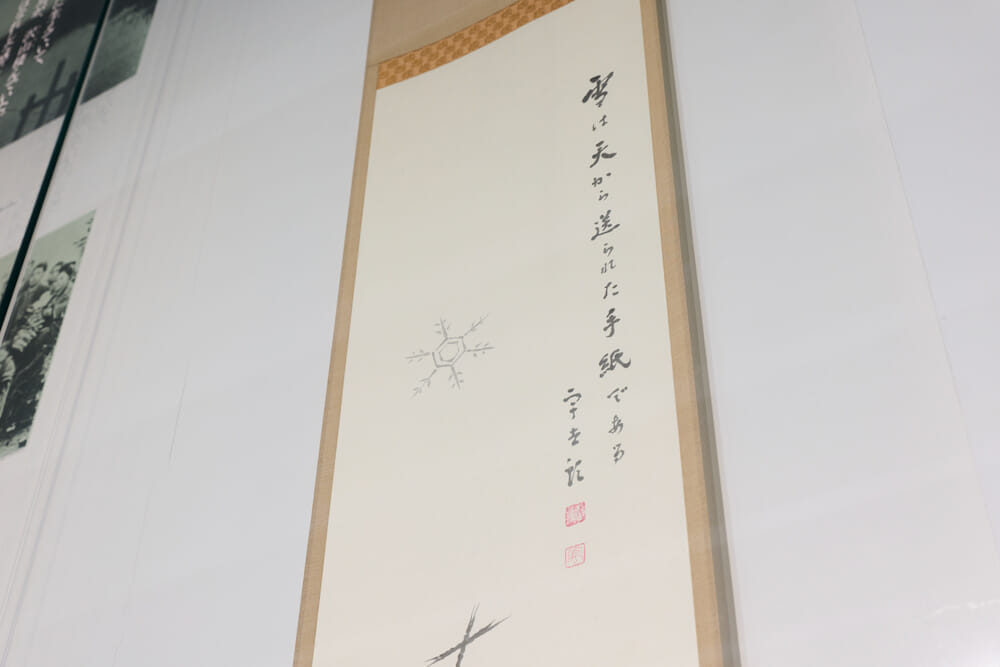 雪は天から送られた手紙である
宇吉郎